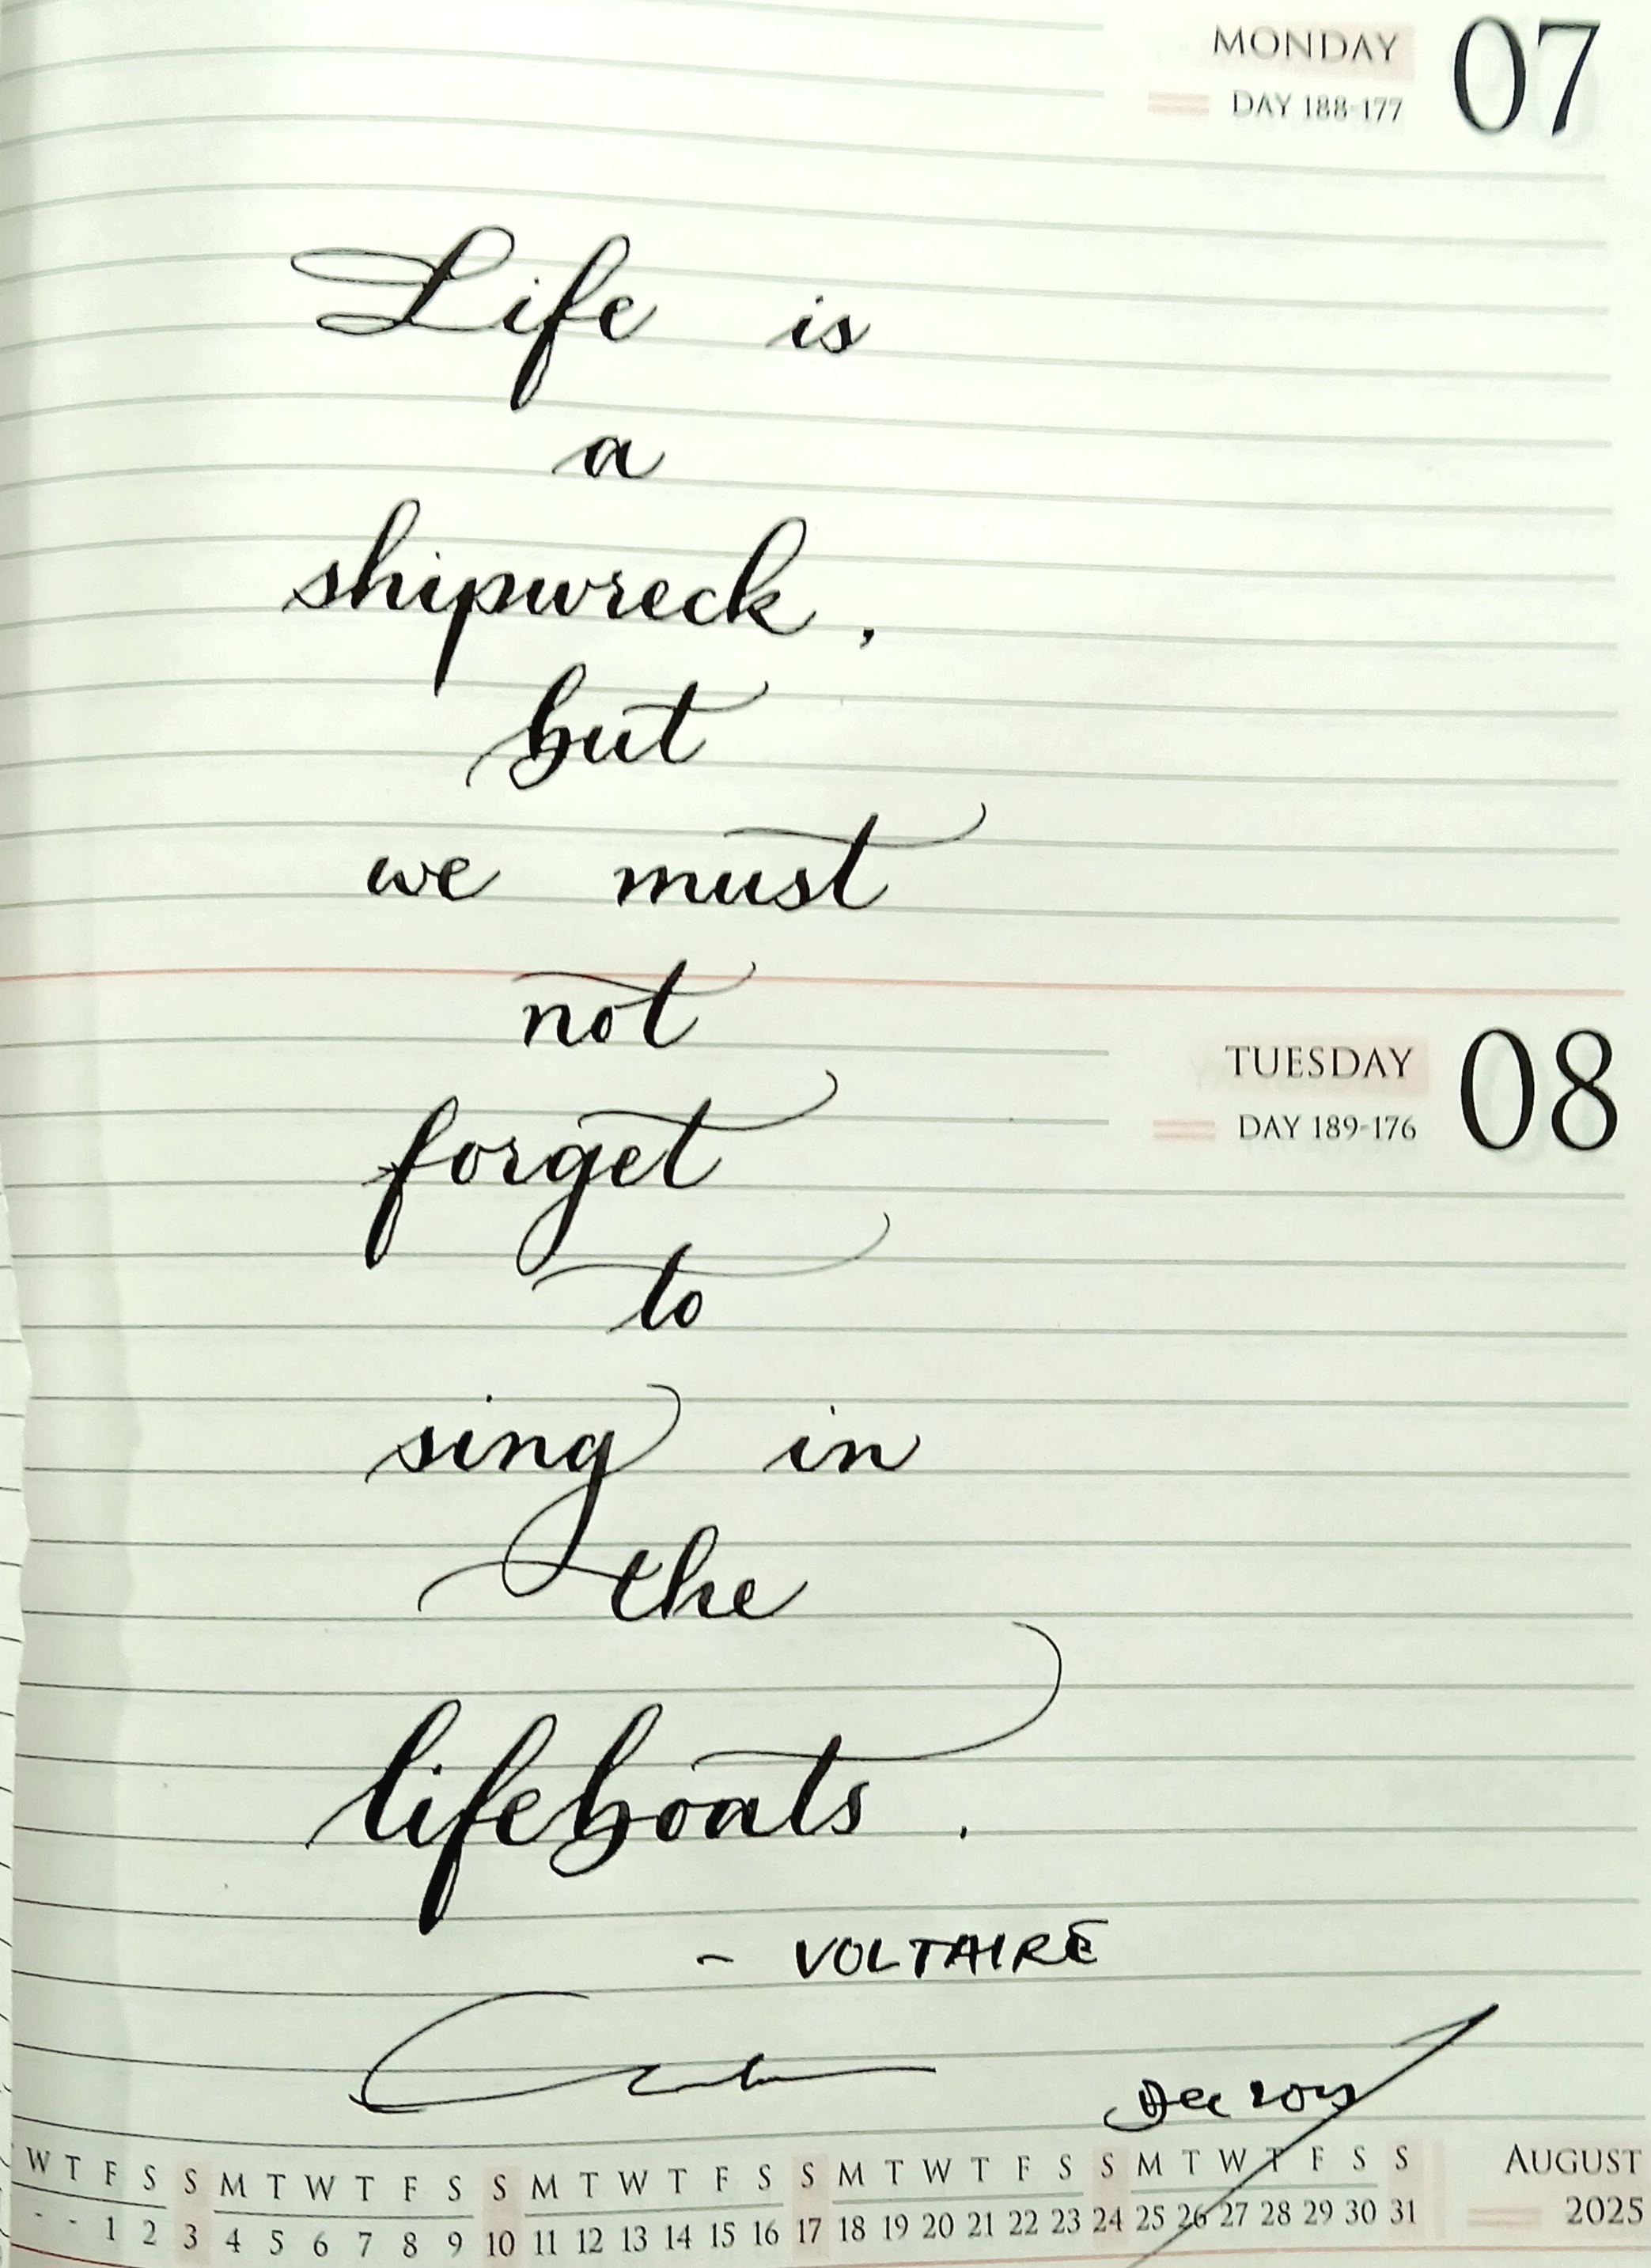 MONDAY 07
DAY 188-177
Life is
a
shipwreck,
but
we must
not
forget
to
sing in
the
lifeboats.
TUESDAY 08
DAY 189-176
- VOLTAIRE
Dec
W T F S S M T W T F S S M T W T F S S M T W T F S S M T W T F S S AUGUST
- - 1 2 3 4 5 6 7 8 9 10 11 12 13 14 15 16 17 18 19 20 21 22 23 24 25 26 27 28 29 30 31 2025